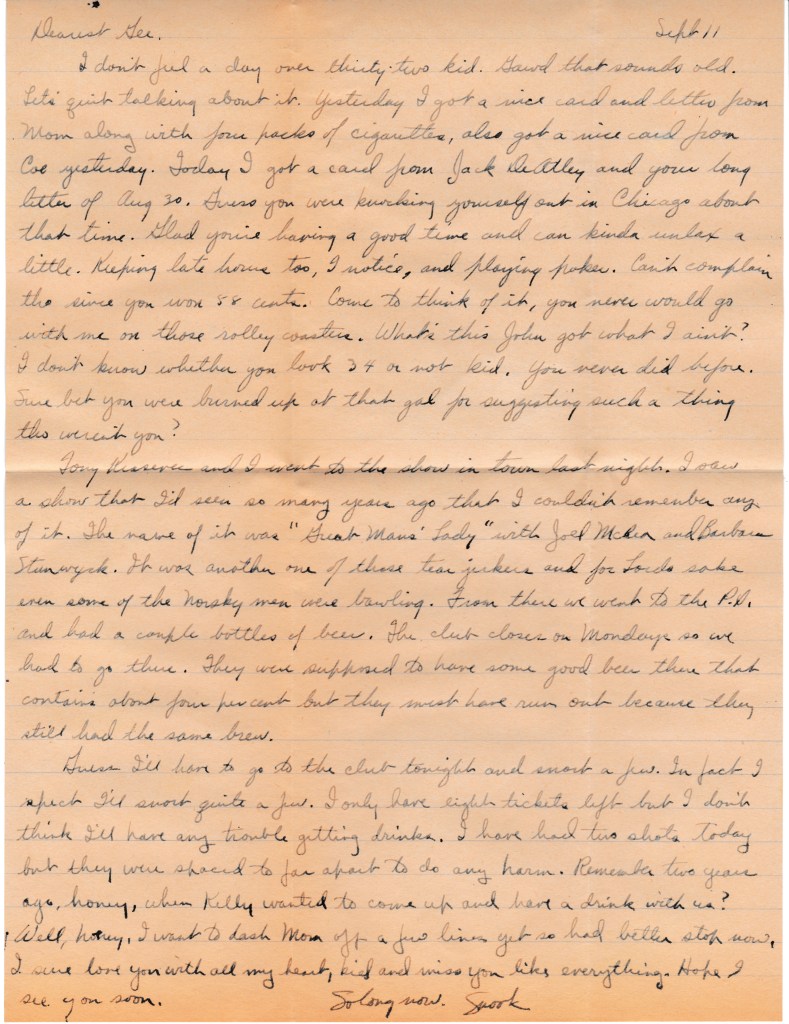 Dearest Gee. Sept 11
I don't feel a day over thirty-two kid. Gawd that sounds old.
Let's quit talking about it. Yesterday I got a nice card and letter from
Mom along with four packs of cigarettes, also got a nice card from
Coe yesterday. Today I got a card from Jack DeAtley and your long
letter of Aug 30. Guess you were knocking yourself out in Chicago about
that time. Glad you're having a good time and can kinda unlax a
little. Keeping late hours too, I notice, and playing poker. Can't complain
tho since you won 58 cents. Come to think of it, you never would go
with me on those rolley coasters. What's this John got what I ain't?
I don't know whether you look 34 or not kid. You never did before.
Sure bet you were burned up at that gal for suggesting such a thing
tho weren't you?
Tony and I went to the show in town last night. I saw
a show that I'd seen so many years ago that I couldn't remember any
of it. The name of it was "Great Mans' Lady" with Joel McCrea and Barbara
Stanwyck. It was another one of those tear jerkers and for Lords sake
even some of the Norsky men were bawling. From there we went to the
and had a couple bottles of beer. The club closes on Mondays so we
had to go there. They were supposed to have some good beer there that
contains about four percent but they must have run out because they
still had the same brew.
Guess I'll have to go to the club tonight and snort a few. In fact I
spect I'll snort quite a few. I only have eight tickets left but I don't
think I'll have any trouble getting drinks. I have had two shots today
but they were spaced to far apart to do any harm. Remember two years
ago, honey, when Kelly wanted to come up and have a drink with us?
Well, honey, I want to dash Mom off a few lines yet so had better stop now.
I sure love you with all my heart, kid and miss you like everything. Hope I
see you soon. So long now. Snook